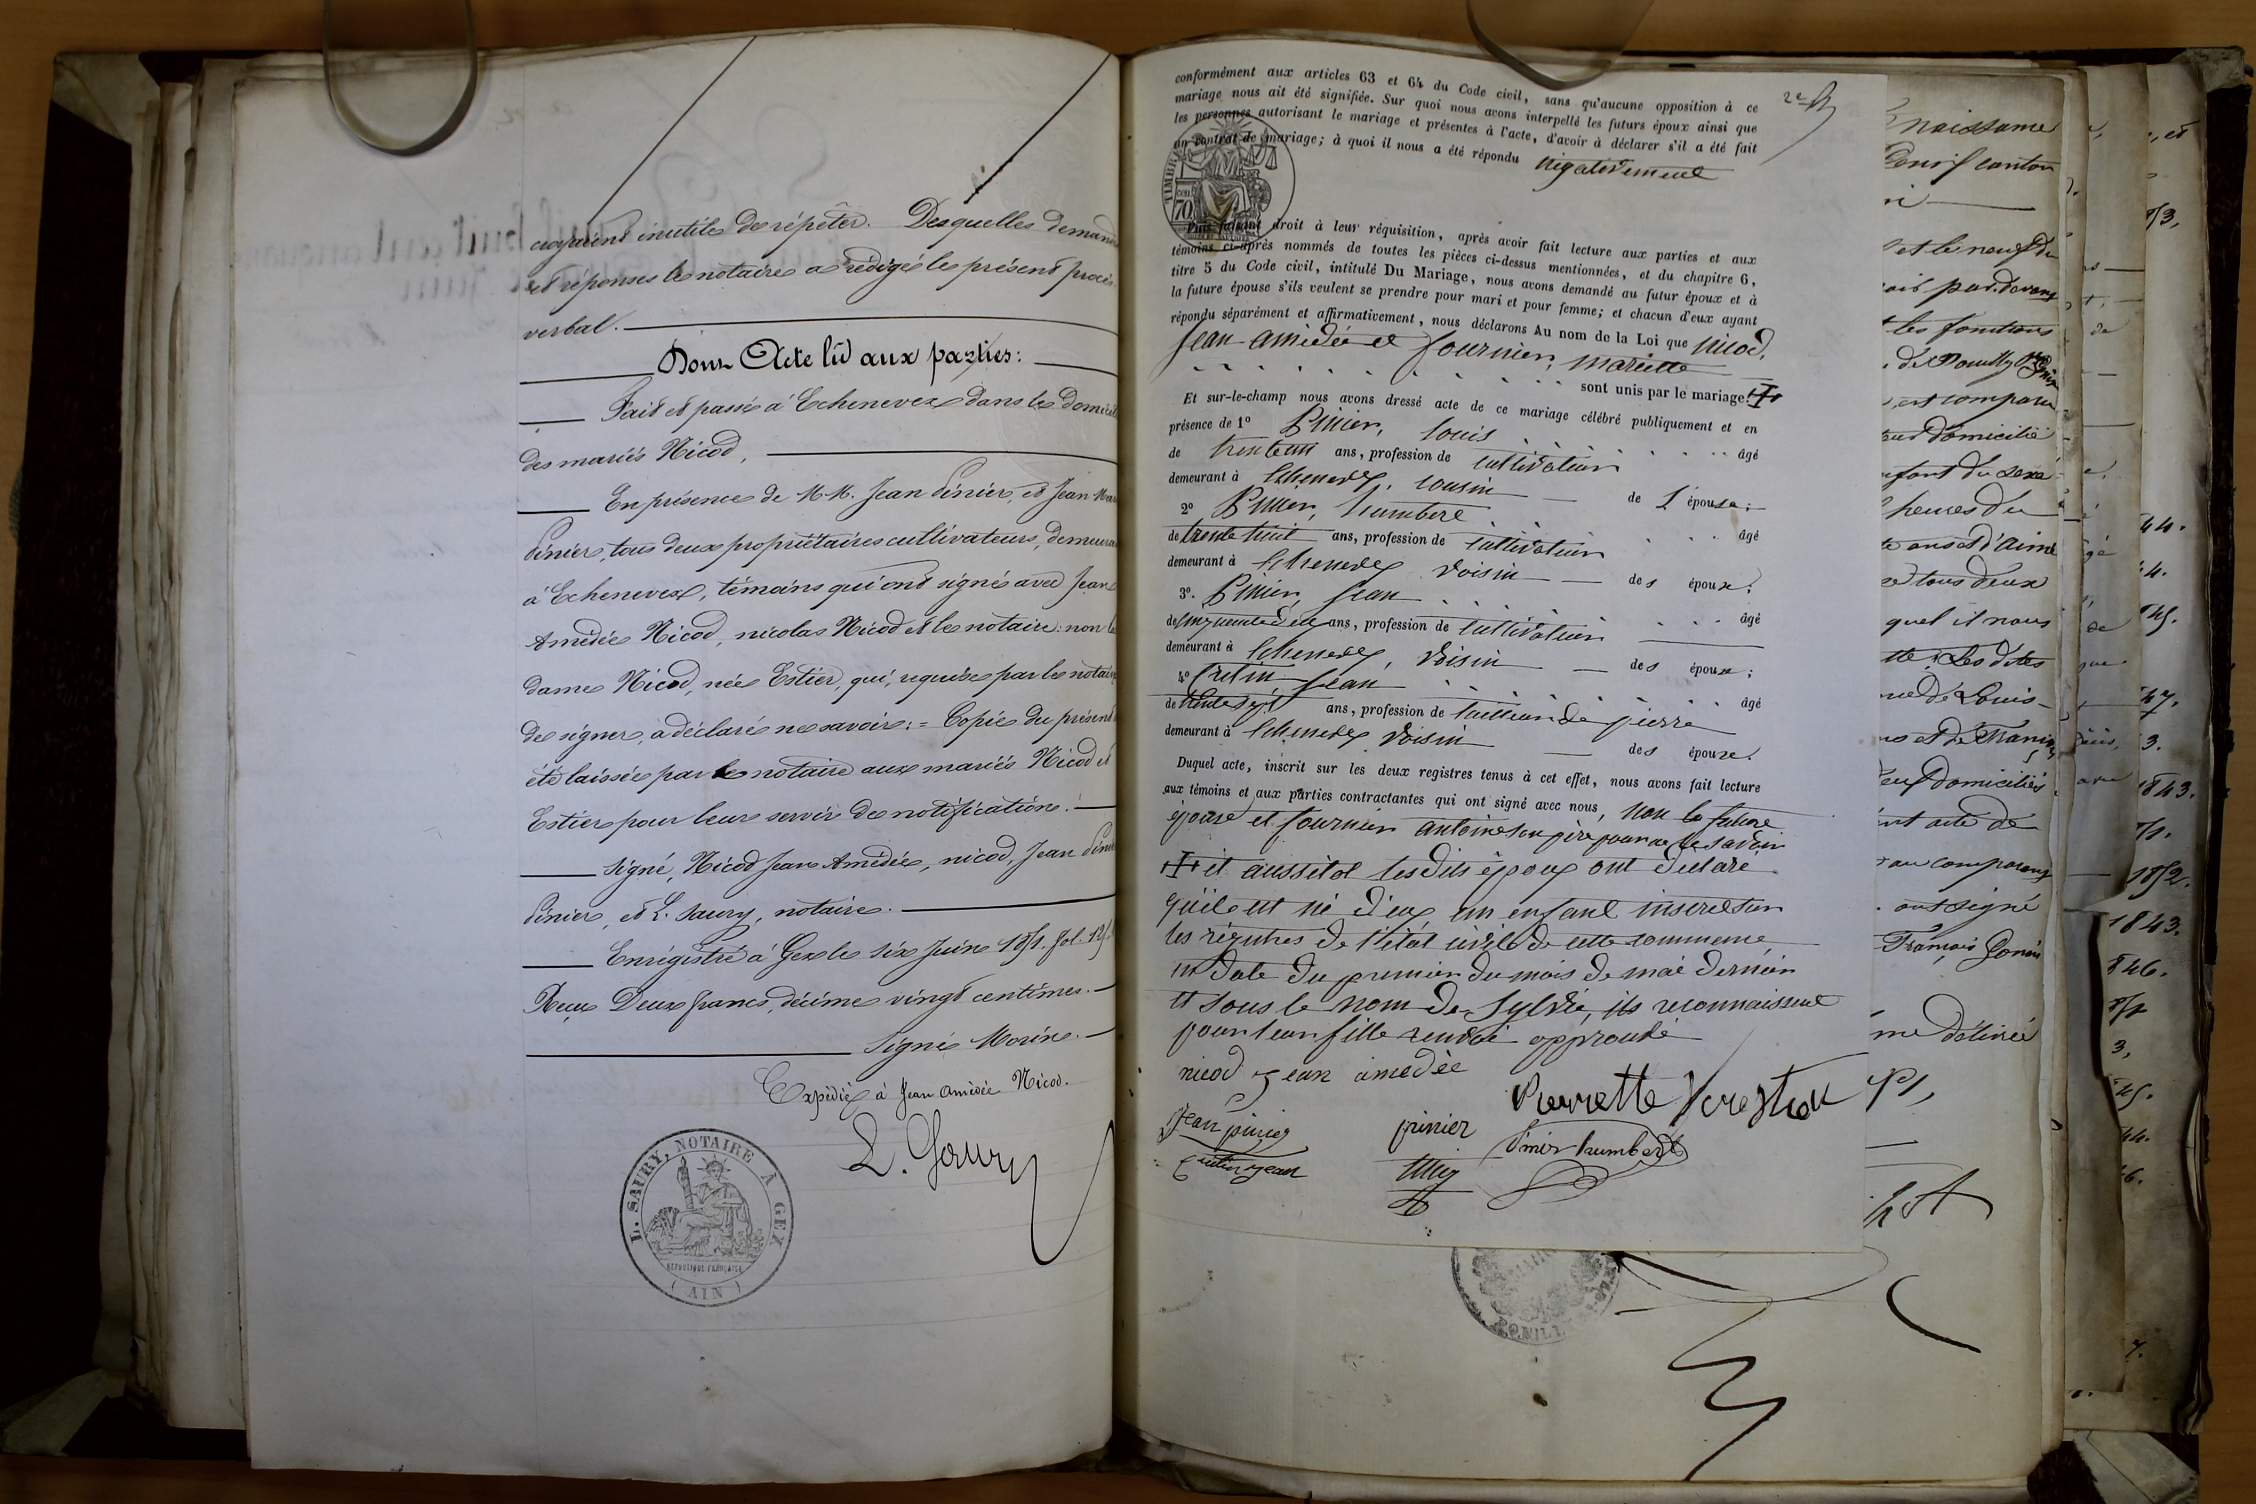 croyaient inutile de répéter. Desquelles demand
et réponses le notaire a rédigé le présent procès
verbal.
Dont Acte lû aux parties:
Fait et passé à Echenevex dans le domicile
des mariés Nicod,
En présence de M.M. Jean Pinier, et Jean Mar
Pinier, tous deux propriétaires cultivateurs, demeura
à Echenevex, témoins qui ont signé avec Jean
Amédée Nicod, nicolas Nicod et le notaire: non la
dame Nicod, née Estier, qui, requise par le notaire
de signer, a déclaré ne savoir: = Copie du présent
été laissée par le notaire aux mariés Nicod et
Estier pour leur servir de notification.
signé, Nicod Jean Amédée, nicod, Jean Pinier
Pinier, et L. Saury, notaire.
Enrégistré à Gex le six Juin 1851. fol. 125
Reçu Deux francs, décime vingt centimes.
Signé Morin.
Expédié à Jean Amédée Nicod.
L. Saury
L. SAURY, NOTAIRE À GEX
RÉPUBLIQUE FRANÇAISE
(AIN)
2e
conformément aux articles 63 et 64 du Code civil, sans qu'aucune opposition à ce
mariage nous ait été signifiée. Sur quoi nous avons interpellé les futurs époux ainsi que
les personnes autorisant le mariage et présentes à l'acte, d'avoir à déclarer s'il a été fait
un contrat de mariage; à quoi il nous a été répondu négativement
TIMBRE
70
Puis faisant droit à leur réquisition, après avoir fait lecture aux parties et aux
témoins ci-après nommés de toutes les pièces ci-dessus mentionnées, et du chapitre 6,
titre 5 du Code civil, intitulé Du Mariage, nous avons demandé au futur époux et à
la future épouse s'ils veulent se prendre pour mari et pour femme; et chacun d'eux ayant
répondu séparément et affirmativement, nous déclarons Au nom de la Loi que nicod,
Jean amédée et fournier, mariette
sont unis par le mariage
Et sur-le-champ nous avons dressé acte de ce mariage célébré publiquement et en
présence de 1º Pinier, Louis âgé
de trente un ans, profession de cultivateur
demeurant à Echenevex, cousin de l'épouse;
2º Pinier, humbert âgé
de trente huit ans, profession de cultivateur
demeurant à Echenevex voisin des époux;
3º. Pinier, Jean âgé
de cinquante deux ans, profession de cultivateur
demeurant à Echenevex, voisin des époux;
4º Cretin, Jean âgé
de trente sept ans, profession de tailleur de pierre
demeurant à Echenevex voisin des époux.
Duquel acte, inscrit sur les deux registres tenus à cet effet, nous avons fait lecture
aux témoins et aux parties contractantes qui ont signé avec nous, non la future
épouse et fournier antoine son père pour ne le savoir
et aussitot lesdits époux ont déclaré
qu'il est né d'eux un enfant inscrit sur
les régistres de l'état civil de cette commune,
en date du premier du mois de mai dernier
et sous le nom de Sylvie, ils reconnaissent
pour leur fille renvoi approuvé
nicod jean amédée
Pierrette
Jean pinier pinier Pinier humbert
Cretin jean
naissance
canton
et le neuf du
par devant
les fonctions
de Pouilly
est comparu
domicilié
enfant du sexe
heures du
ans et d'aimé
tous deux
quel il nous
Les dites
de Louis
et de Franç
domiciliés
acte de
au comparant
ont signé
François Gonin
délivrée
1843.
1852.
1843.
846.